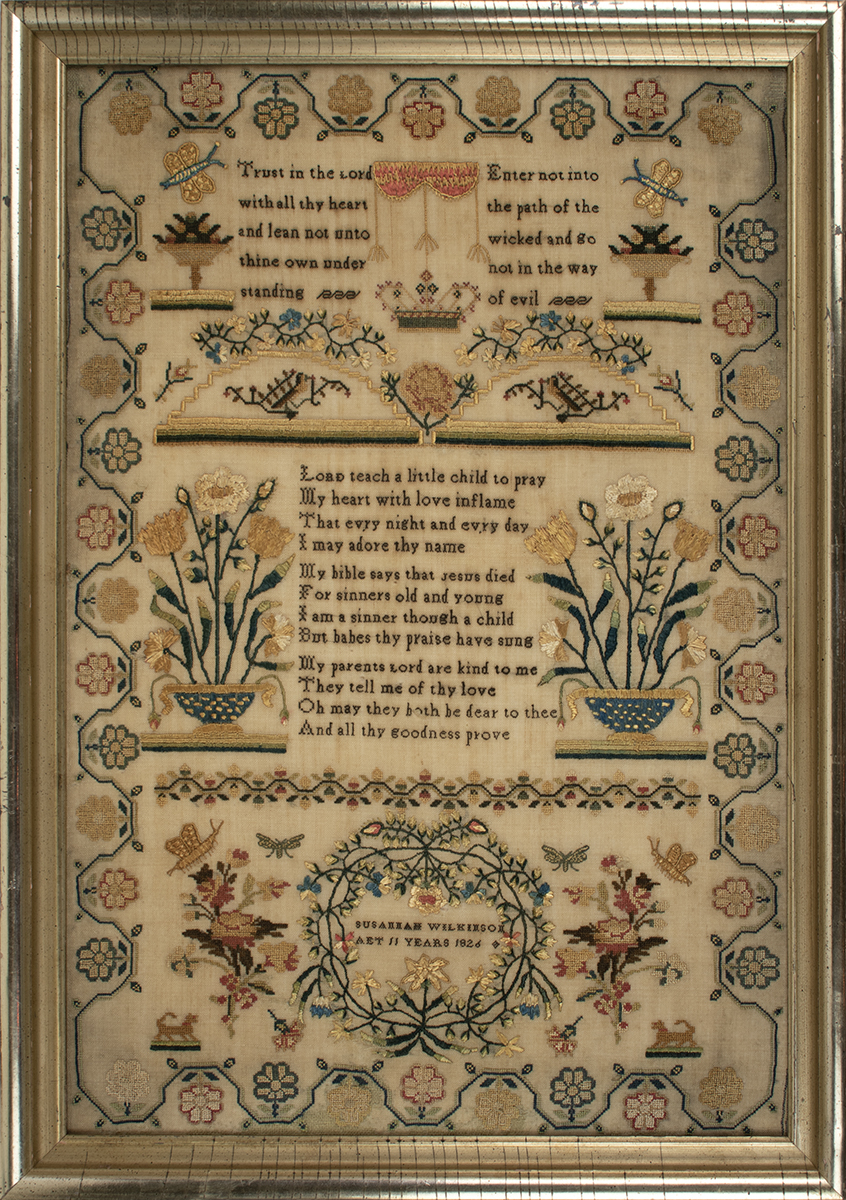 Trust in the Lord
with all thy heart
and lean not unto
thine own under
standing
Enter not into
the path of the
wicked and go
not in the way
of evil
Lord teach a little child to pray
My heart with love inflame
That evry night and evry day
I may adore thy name
My bible says that Jesus died
For sinners old and young
I am a sinner though a child
But babes thy praise have sung
My parents Lord are kind to me
They tell me of thy love
Oh may they both be dear to thee
And all thy goodness prove
SUSANNAH WILKINSON
AET 11 YEARS 1826